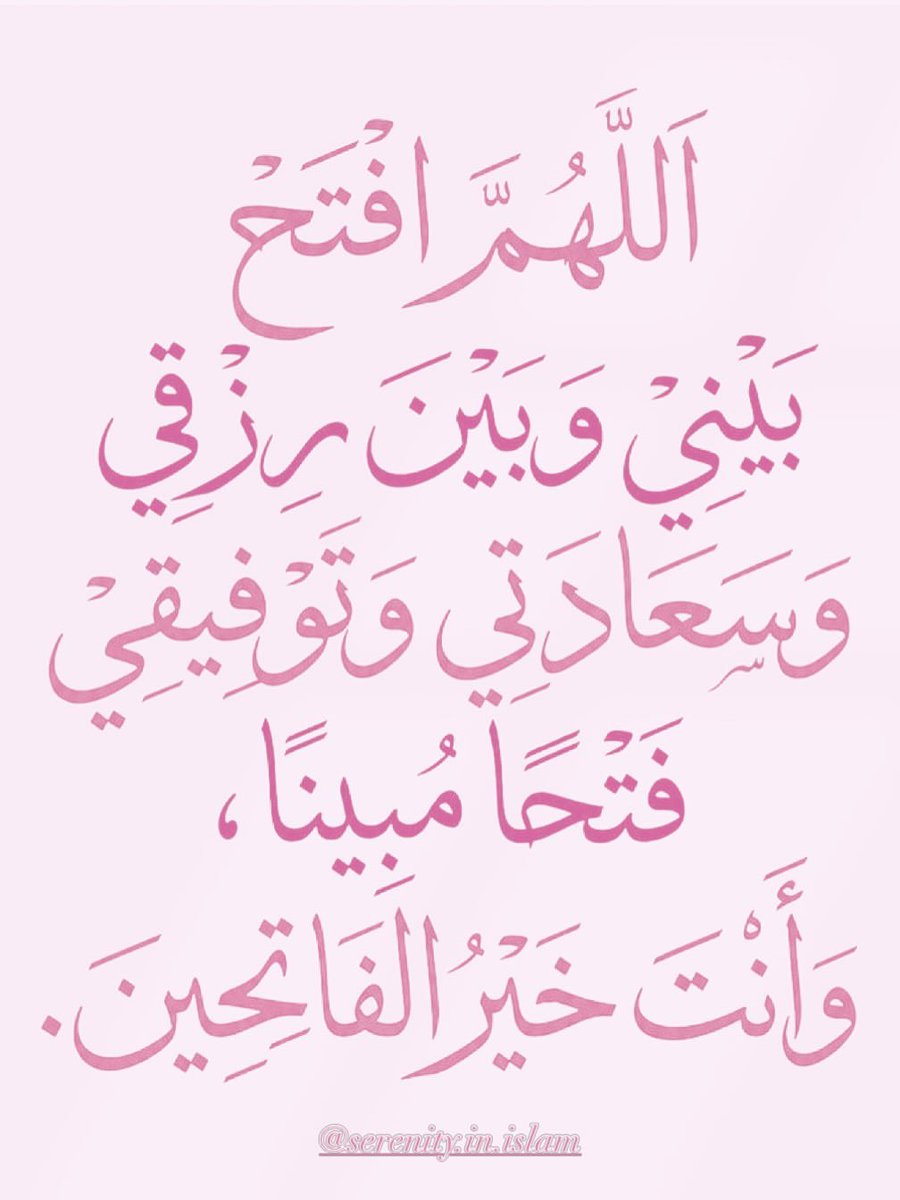 اَللَّهُمَّ افْتَحْ
بَيْنِيْ وَبَيْنَ رِزْقِي
وَسَعَادَتِي وَتَوْفِيقِيْ
فَتْحًا مُبِينًا،
وَأَنْتَ خَيْرُ الفَاتِحِينَ.
@serenity.in.islam